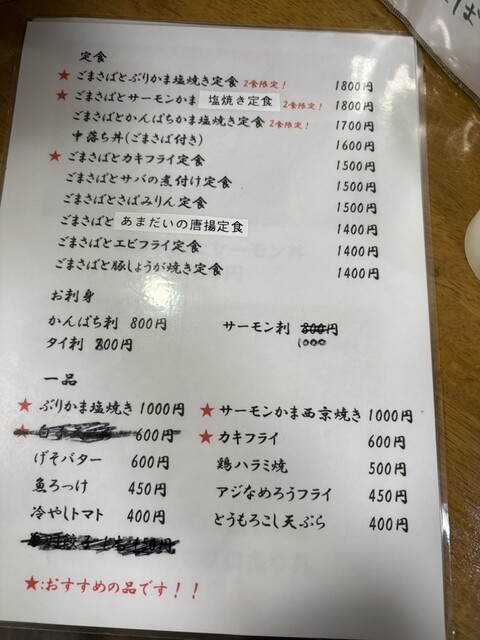 定食
★ ごまさばとぶりかま塩焼き定食 2食限定! 1800円
★ ごまさばとサーモンかま 塩焼き定食 2食限定! 1800円
ごまさばとかんぱちかま塩焼き定食 2食限定! 1700円
中落ち丼(ごまさば付き) 1600円
★ ごまさばとカキフライ定食 1500円
ごまさばとサバの煮付け定食 1500円
ごまさばとさばみりん定食 1500円
ごまさばと あまだいの唐揚定食 1400円
ごまさばとエビフライ定食 1400円
ごまさばと豚しょうが焼き定食 1400円
お刺身
かんぱち刺 800円 サーモン刺 800円
1000
タイ刺 800円
一品
★ ぶりかま塩焼き 1000円 ★ サーモンかま西京焼き 1000円
★ 600円 ★ カキフライ 600円
げそバター 600円 鶏ハラミ焼 500円
魚ろっけ 450円 アジなめろうフライ 450円
冷やしトマト 400円 とうもろこし天ぷら 400円
★:おすすめの品です!!